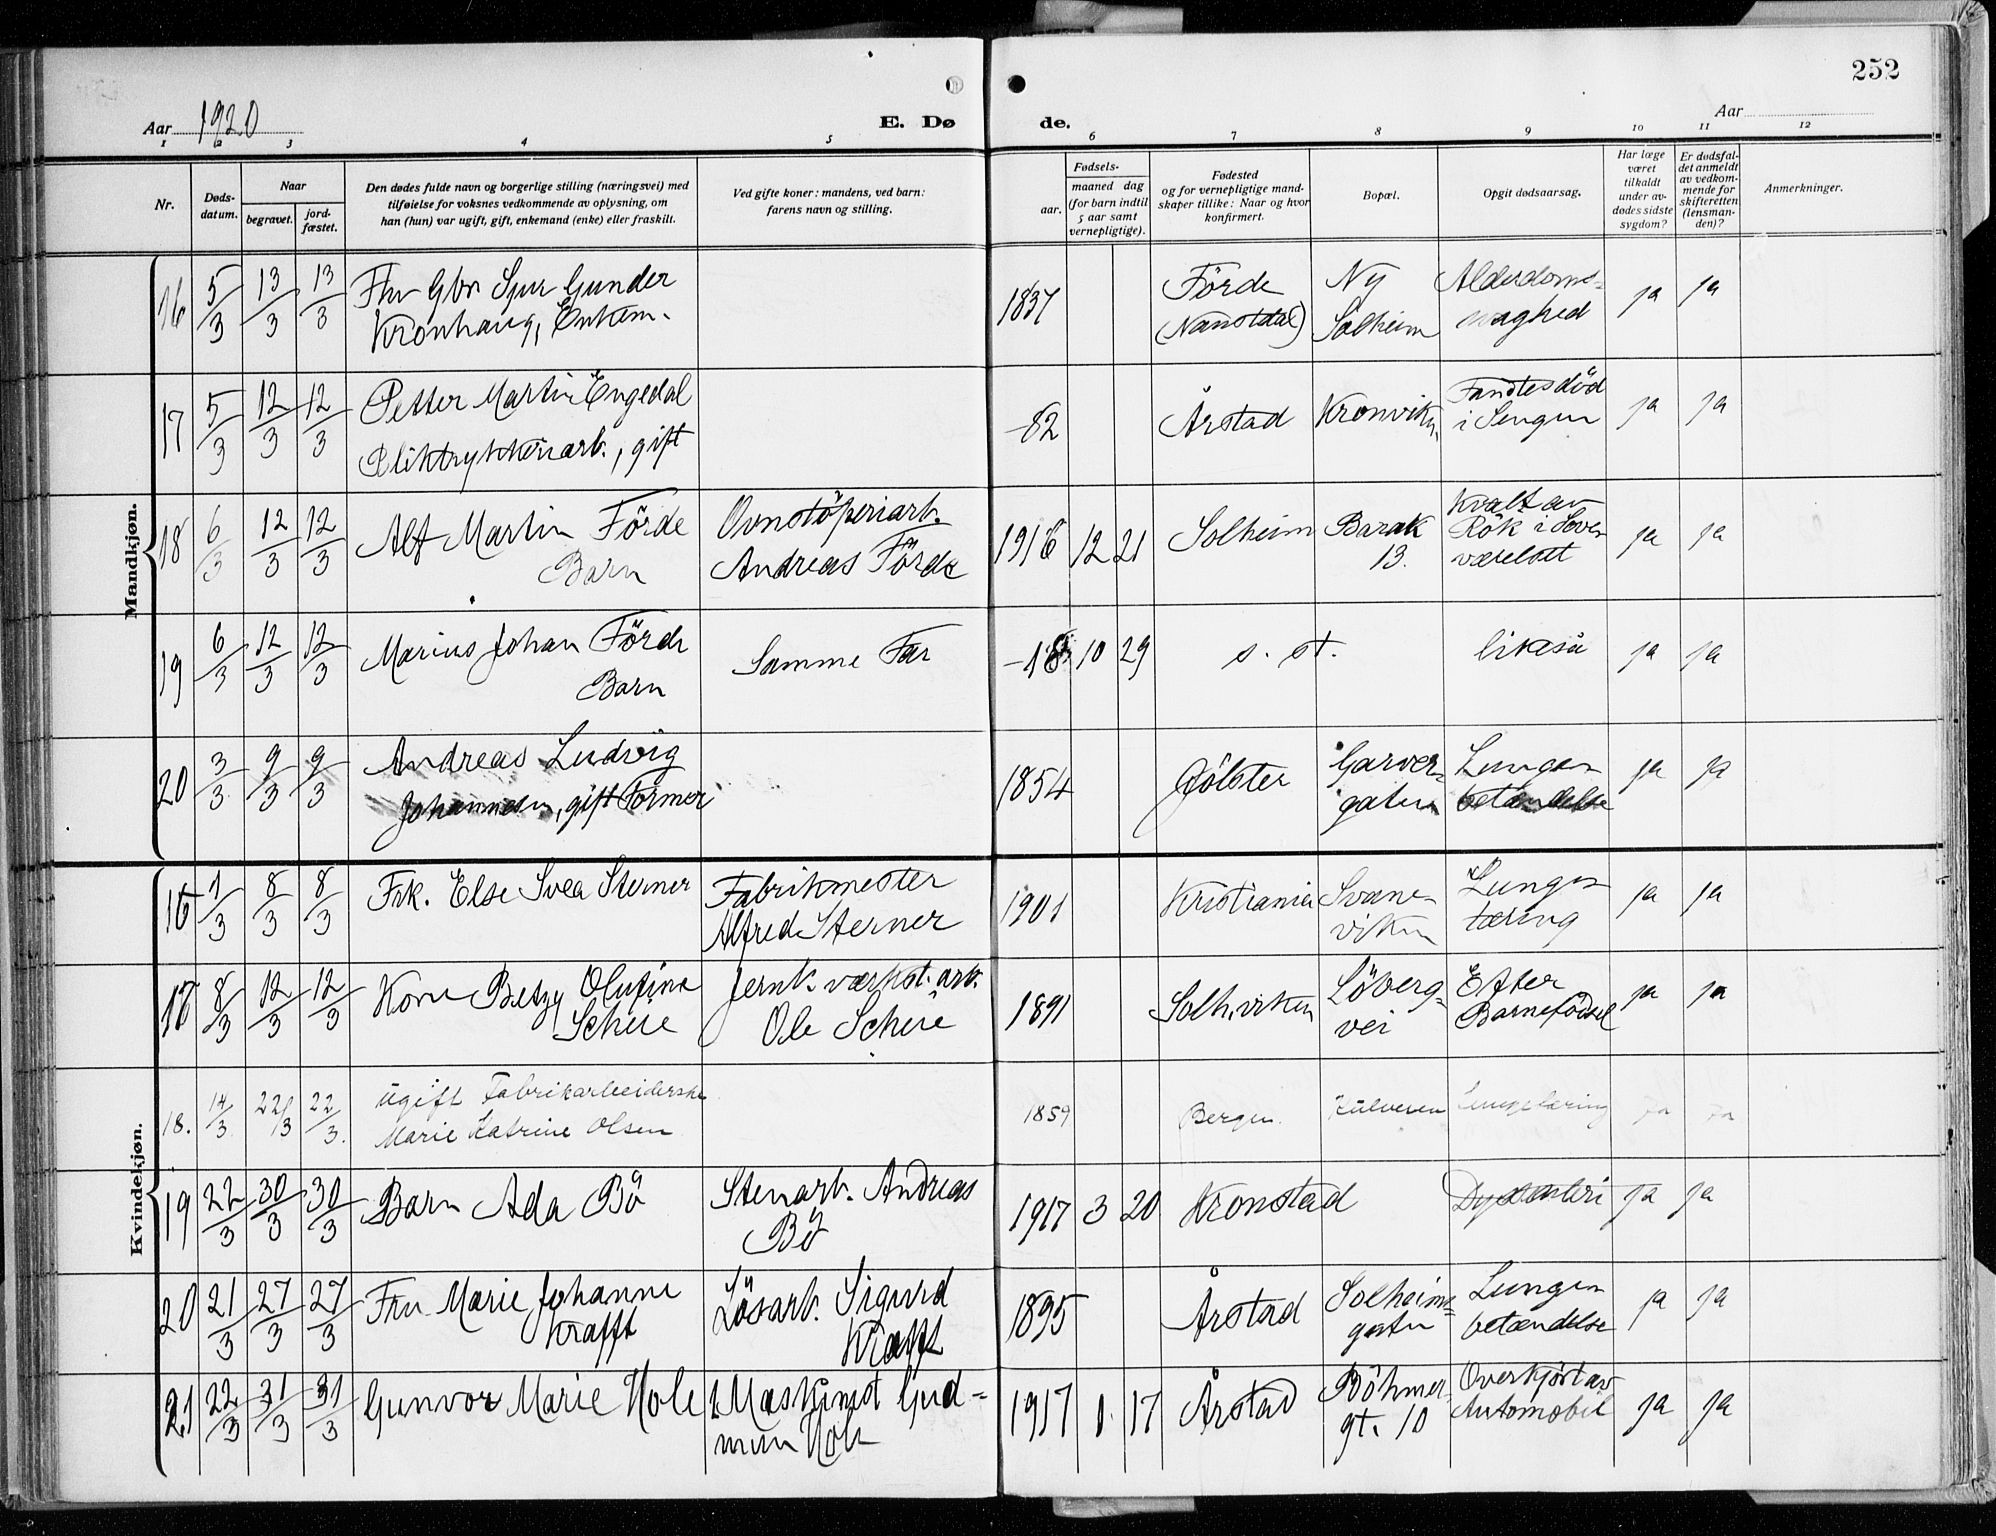 252
Aar 1920
E. Dø
de.
Aar
1 2 3 4 5 6 7 8 9 10 11 12
Nr.
Døds-
datum.
Naar
begravet.
jord-
fæstet.
Den dødes fulde navn og borgerlige stilling (næringsvei) med
tilføielse for voksnes vedkommende av oplysning, om
han (hun) var ugift, gift, enkemand (enke) eller fraskilt.
Ved gifte koner: mandens, ved barn:
farens navn og stilling.
Fødsels-
aar.
maaned dag
(for barn indtil
5 aar samt
vernepligtige).
Fødested
og for vernepligtige mand-
skaper tillike: Naar og hvor
konfirmert.
Bopæl.
Opgit dødsaarsag.
Har læge
været
tilkaldt
under av-
dødes sidste
sygdom?
Er dødsfal-
det anmeldt
av vedkom-
mende for
skifteretten
(lensman-
den)?
Anmerkninger.
Mandkjøn.
16 5/3 13/3 13/3 Fhv Gbr Sjur Gunder
Kronhaug, Enkem.
1837
Förde
Ny
Solheim
Alderdoms-
svaghed
ja ja
17 5/3 12/3 12/3 Petter Martin Engedal
Bliktrykkeriarb., gift
-82 Årstad Kronviken
i Sengen
ja ja
18 6/3 12/3 12/3 Alf Martin Förde
Barn
Ovnstöperiarb.
Andreas Förde
1916 12 21 Solheim Barak
13.
Kvalt av
Rök i Sove-
værelset
ja ja
19 6/3 12/3 12/3 Marius Johan Förde
Barn
Samme Far
-18 10 29 s. st. likeså ja ja
20 3/3 9/3 9/3 Andreas Ludvig
Johannesen, gift Former
1854 Jölster Garver-
gaten
Lungen
betændelse
ja ja
Kvindekjøn.
16 1/3 8/3 8/3 Frk. Else Svea Sterner
Fabrikmester
Alfred Sterner
1901 Kristiania Svane-
viken
Lunge
tæring
ja ja
17 8/3 12/3 12/3 Kone Betzy Olufine
Scheie
Jernb. værkst. arb.
Ole Scheie
1891 Solh.viken Löberg-
vei
Efter
Barnefödsel
ja ja
18. 14/3 22/3 22/3. ugift Fabrikarbeiderske
Marie Katrine Olsen
1859 Bergen. Lungetæring ja ja
19 22/3 30/3 30/3 Barn Ada Bö
Stenarb. Andreas
Bö
1917 3 20 Kronstad Dysenteri ja ja
20 21/3 27/3 27/3 Fru Marie Johanne
Krafft
Lösarb. Sigurd
Krafft
1895 Årstad Solheims-
gaten
Lungen
betændelse
ja ja
21 22/3 31/3 31/3 Gunvor Marie Hole
Maskinist Gud-
mun Hole
1917 1. 17 Årstad Böhmer
gt. 10
Overkjört av
Automobil
ja ja